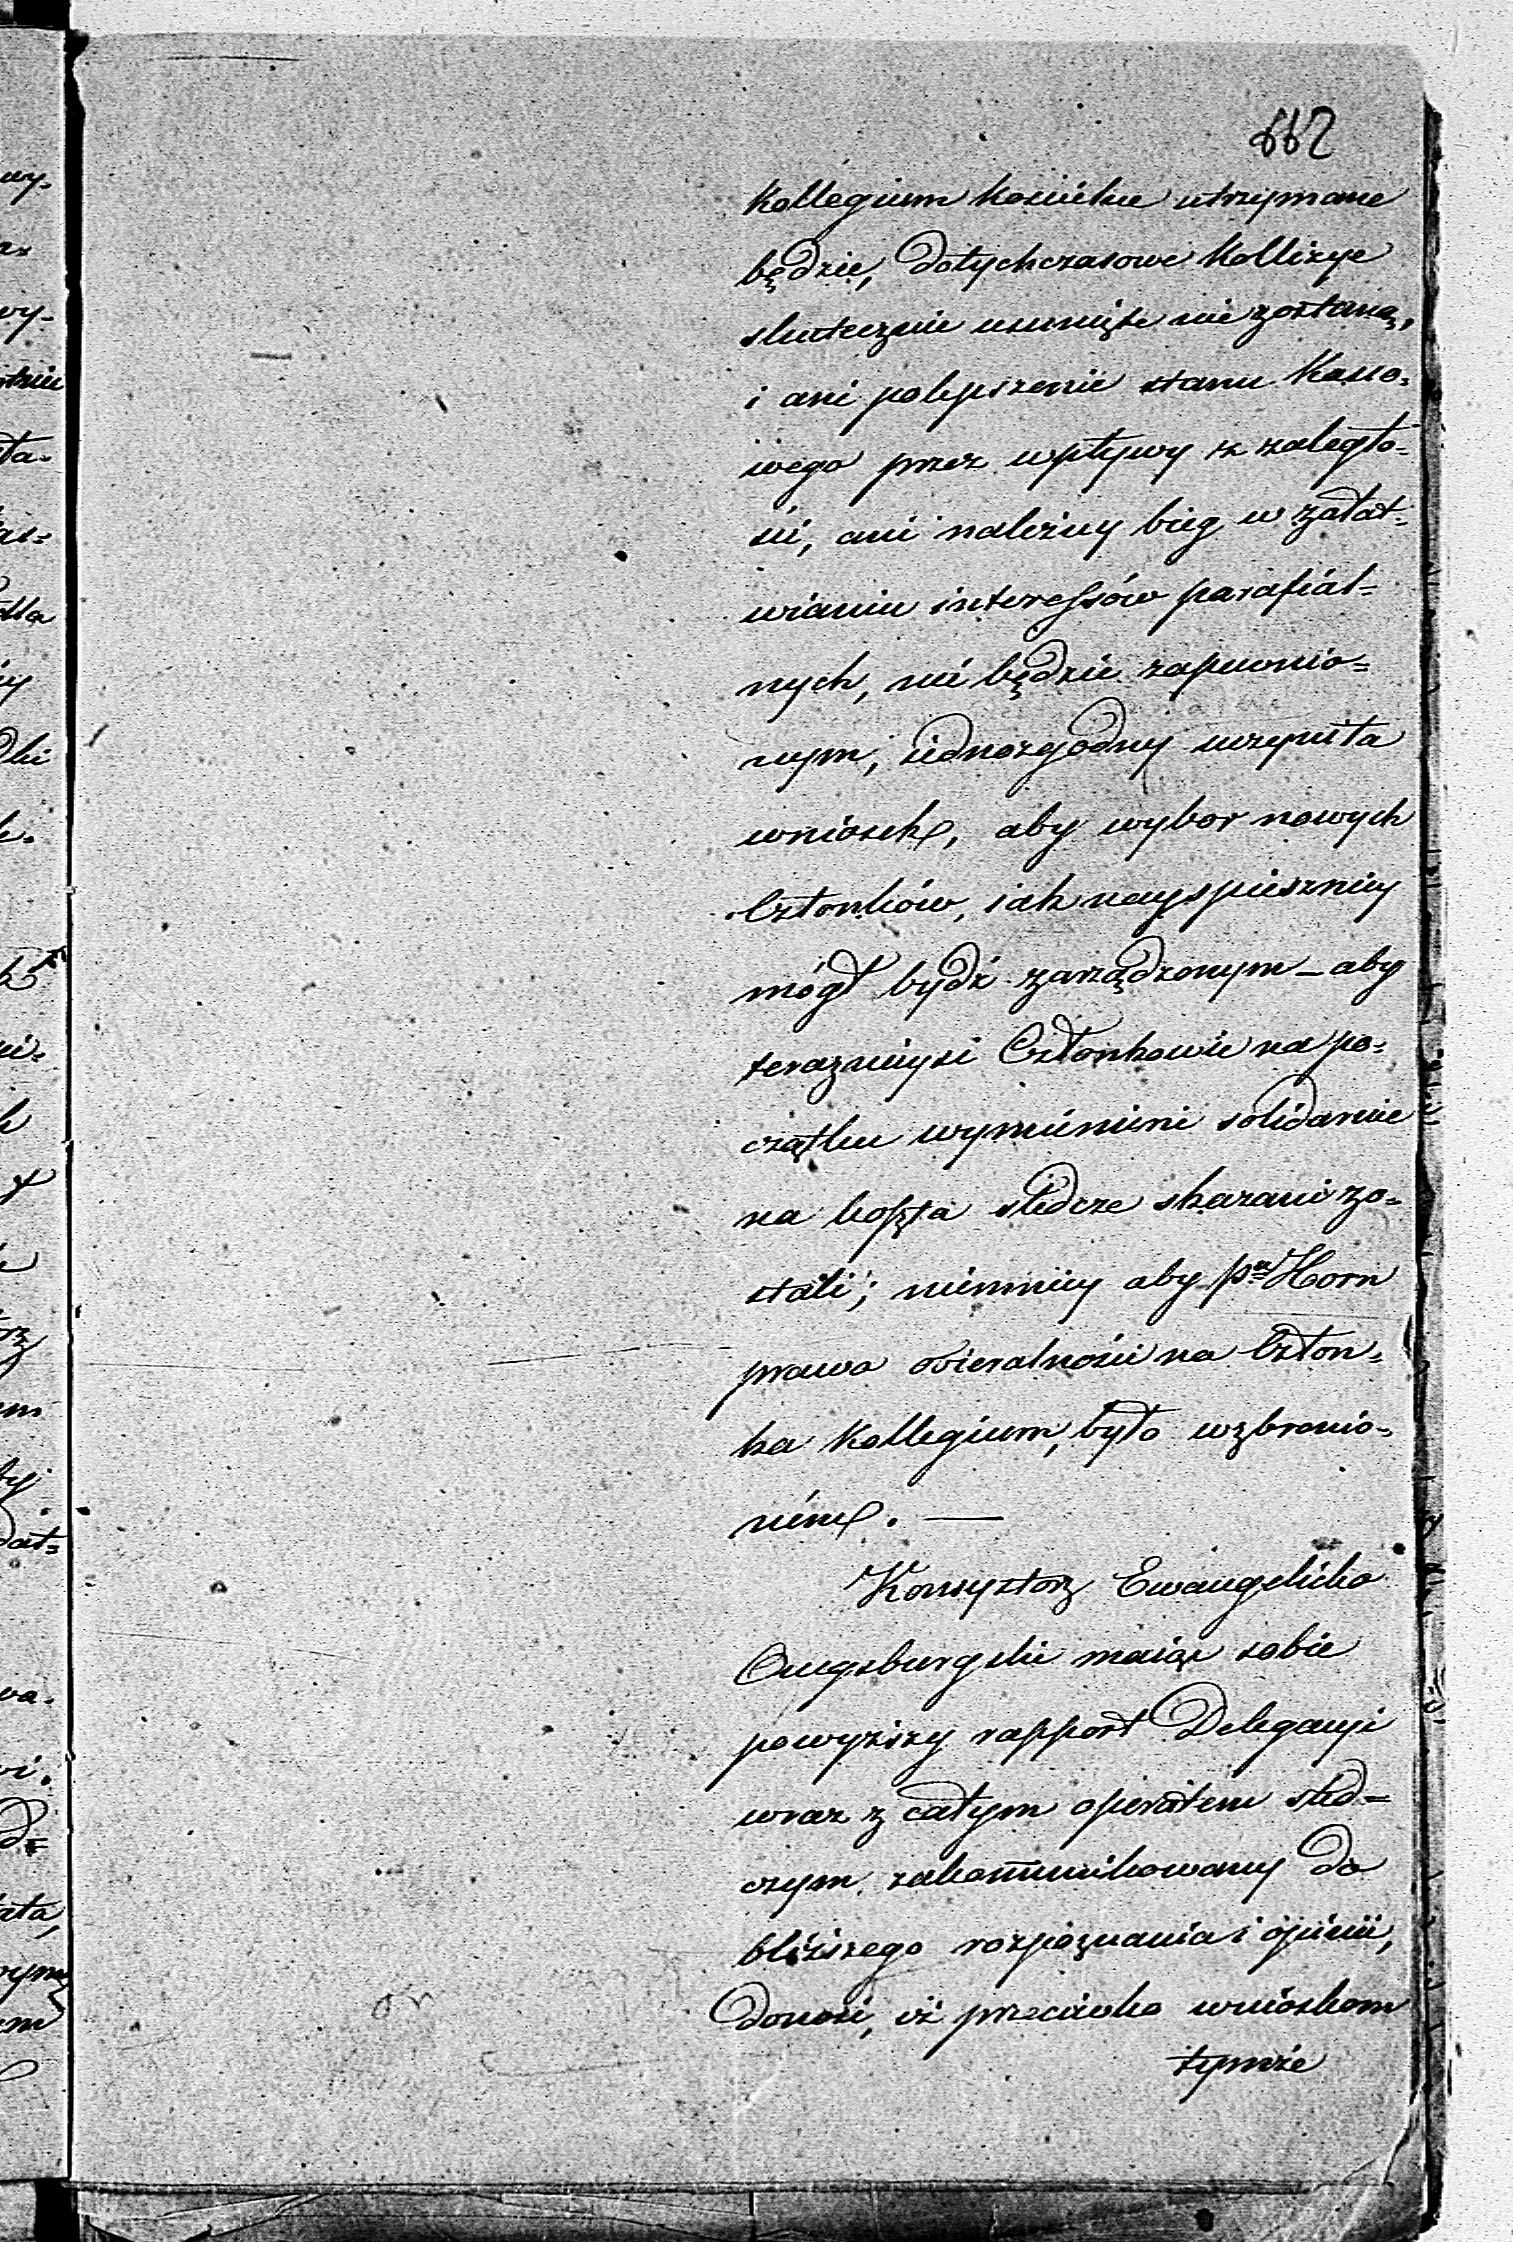 662
Kollegium Kościelne utrzymane
będzie, dotychczasowe Kollizye
skutecznie usunięte nie zostaną,
i ani polepszenie stanu Kasso=
wego przez wpływy z zaległo=
ści, ani należny bieg w załat=
wianiu interessów parafial=
nych, nie będzie zapewnio=
nym, jednozgodny uczyniła
wniosek, aby wybor nowych
Członków, iak nayspieszniey
mógł bydź zarządzonym – aby
teraznieysi Członkowie na po=
czątku wymienieni solidarnie
na koszta śledcze skazani zo=
stali; niemniey aby pn Horn
prawo obieralności na Człon=
ka Kollegium, było wzbronio=
ném. —
Konsystorz Ewangelicko
Augsburgski maiąc sobie
powyższy rapport Delegacyi
wraz z całym operatem śled=
czym zakomunikowany do
bliższego rozpoznania i opinii,
donosi, iż przeciwko wnioskom
tymże